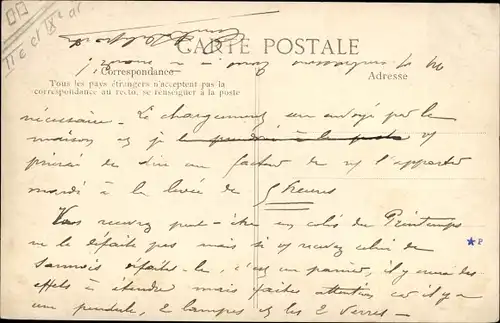 IIe et IXe ar
CARTE POSTALE
Correspondance
Adresse
Tous les pays étrangers n'acceptent pas la
correspondance au recto, se renseigner à la poste
nécessaire. Le chargement sera envoyé par la
maison et je le prendrai à la poste
prierai de dire au facteur de l'apporter
mardi à la levée de 5 heures
Vous recevrez peut-être un colis du Printemps
ne le défaite pas mais si vs recevez celui de
Samois défaites-le, c'est un panier, il y aurait des
effets à étendre mais faites attention, car il y a
une pendule, 2 lampes et les 2 verres—